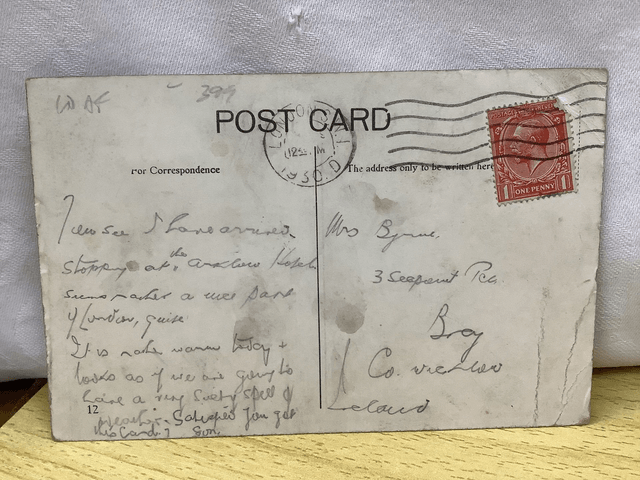 399
POST CARD
LONDON
1230 PM
1930
POSTAGE REVENUE
ONE PENNY
For Correspondence
The address only to be written here
You see I have arrived
stopping at the Hotel
rather a nice part
of London, quite
It is rather warm today &
looks as if we are going to
have a very spell of
weather. you get
this card? Son
Mrs Byrne,
3 Seapoint Tce
Bray
Co. Wicklow
Ireland
12